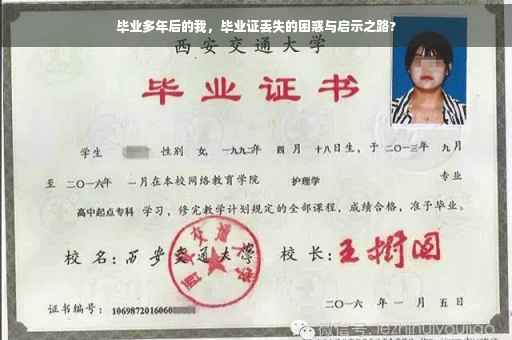 毕业多年后的我，毕业证丢失的困惑与启示之路？
西安交通大学
毕业证书
学生 性别 女，一九九二年 四月 十八日生，于二〇一三年 九月
至 二〇一六年 一月在本校网络教育学院 护理学 专业
高中起点专科 学习，修完教学计划规定的全部课程，成绩合格，准予毕业。
校名：西安交通大学 校长：王树国
西安交通大学
证书编号：1069872016060 二〇一六年 一月 五日
微信号: jezhihuiyoujiao